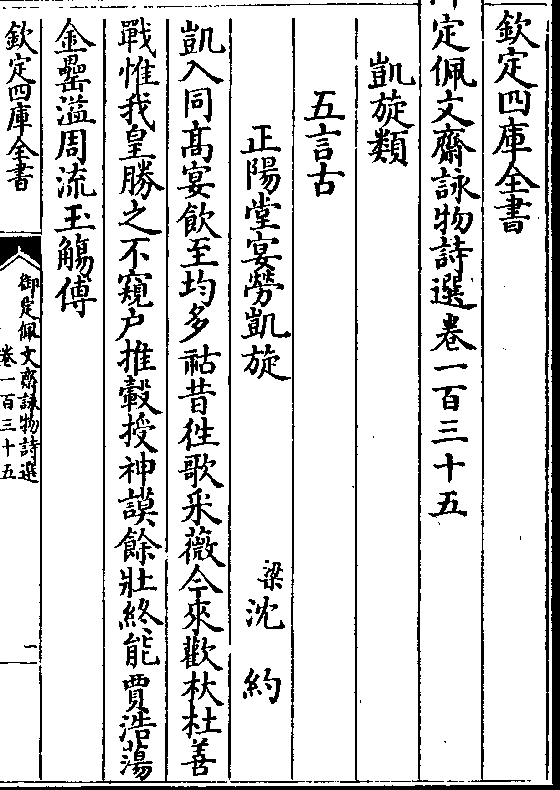 欽定四庫全書
定佩文齋詠物詩選卷一百三十五
凱旋類
五言古
正陽堂宴勞凱旋 梁沈約
凱入同髙宴飲至均多祜昔徃歌采薇今來歡杕杜善
戰惟我皇勝之不窺户推轂授神謨餘壯終能賈浩蕩
金罍溢周流玉觴傅
欽定四庫全書
御定佩文齋詠物詩選
卷一百三十五
一